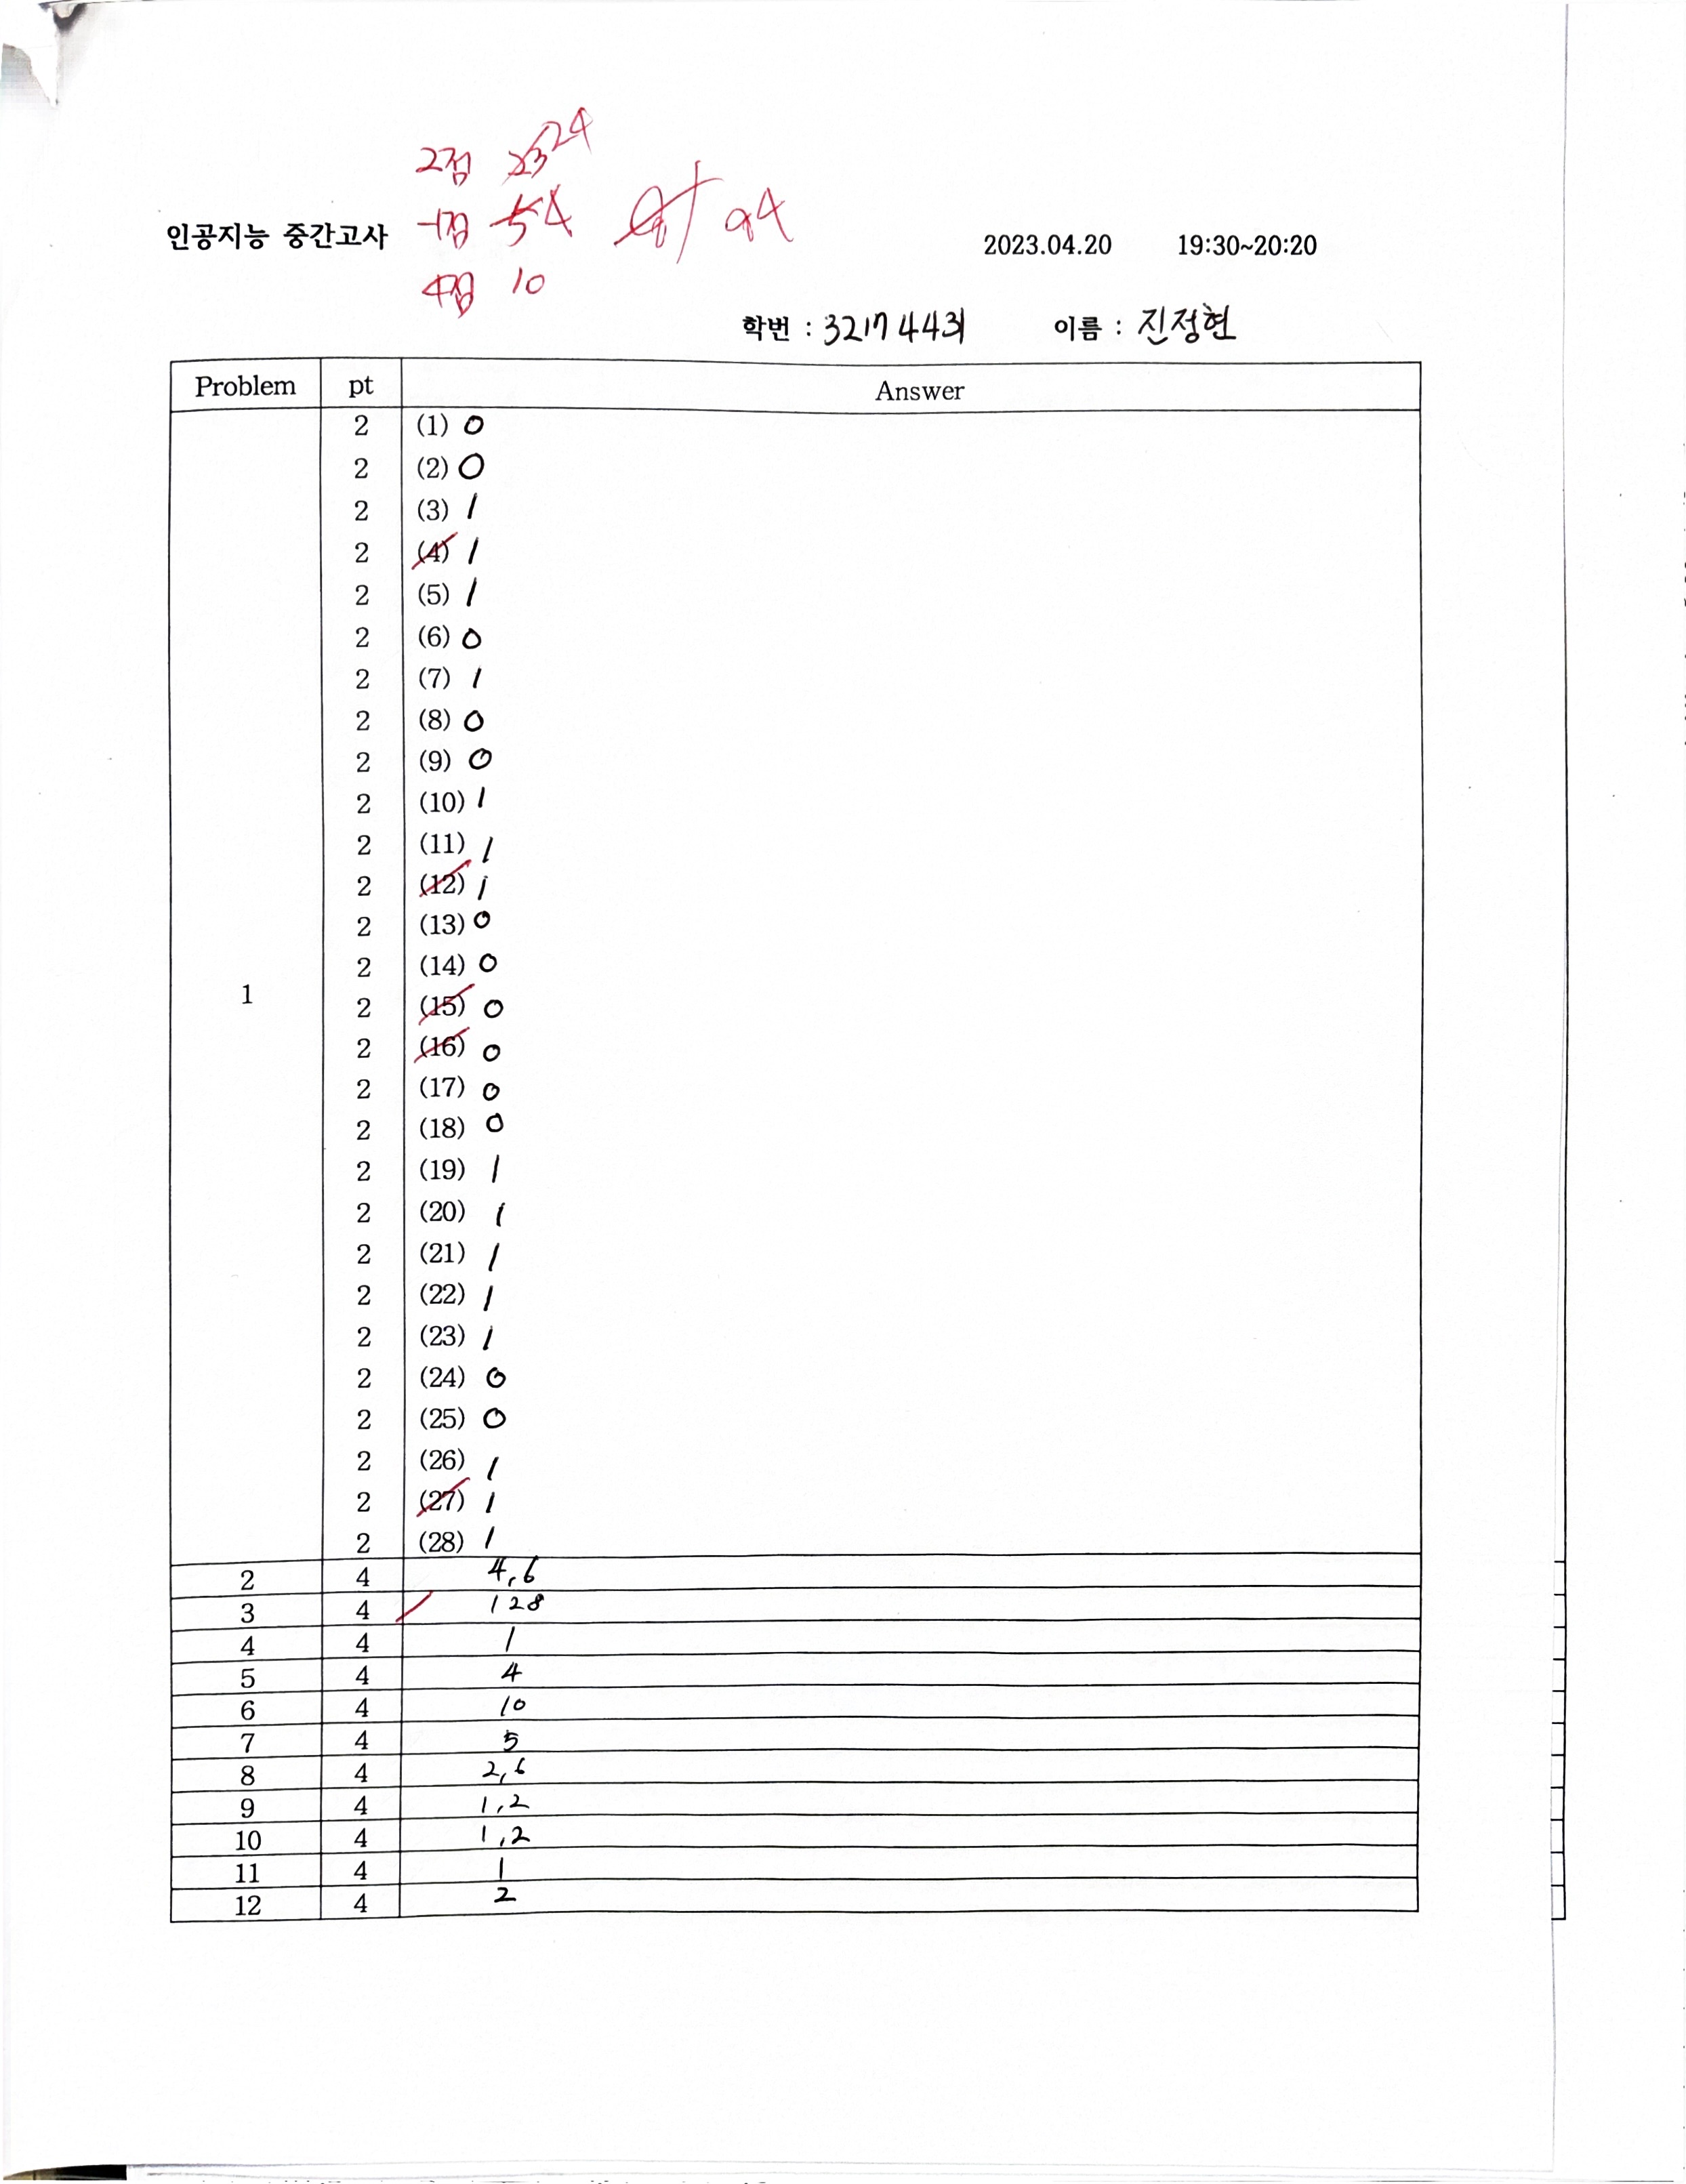 2점 23 24
인공지능 중간고사 -1점 5 4 94
2023.04.20 19:30~20:20
4점 10
학번 : 32174431 이름 : 진정현
Problem pt Answer
2 (1) 0
2 (2) 0
2 (3) 1
2 (4) 1
2 (5) 1
2 (6) 0
2 (7) 1
2 (8) 0
2 (9) 0
2 (10) 1
2 (11) 1
2 (12) 1
2 (13) 0
2 (14) 0
1
2 (15) 0
2 (16) 0
2 (17) 0
2 (18) 0
2 (19) 1
2 (20) 1
2 (21) 1
2 (22) 1
2 (23) 1
2 (24) 0
2 (25) 0
2 (26) 1
2 (27) 1
2 (28) 1
2 4 4,6
3 4 128
4 4 1
5 4 4
6 4 10
7 4 5
8 4 2,6
9 4 1,2
10 4 1,2
11 4 1
12 4 2